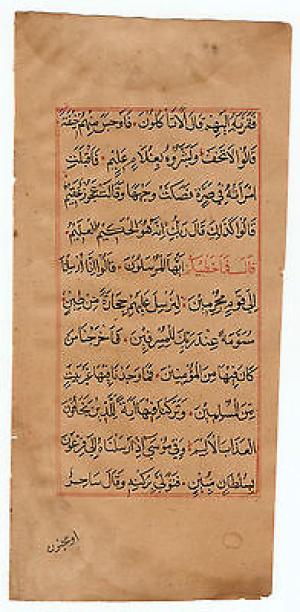 فَقَرَّبَهُ اِلَيْهِمْ قَالَ اَلَا تَأْكُلُونَ فَاَوْجَسَ مِنْهُمْ خِيفَةً
قَالُوا لَا تَخَفْ وَبَشَّرُوهُ بِغُلَامٍ عَلِيمٍ فَاَقْبَلَتِ
امْرَاَتُهُ فِي صَرَّةٍ فَصَكَّتْ وَجْهَهَا وَقَالَتْ عَجُوزٌ عَقِيمٌ
قَالُوا كَذَلِكِ قَالَ رَبُّكِ اِنَّهُ هُوَ الْحَكِيمُ الْعَلِيمُ
قَالَ فَمَا خَطْبُكُمْ اَيُّهَا الْمُرْسَلُونَ قَالُوا اِنَّا اُرْسِلْنَا
اِلَى قَوْمٍ مُجْرِمِينَ لِنُرْسِلَ عَلَيْهِمْ حِجَارَةً مِنْ طِينٍ
مُسَوَّمَةً عِنْدَ رَبِّكَ لِلْمُسْرِفِينَ فَاَخْرَجْنَا مَنْ
كَانَ فِيهَا مِنَ الْمُؤْمِنِينَ فَمَا وَجَدْنَا فِيهَا غَيْرَ بَيْتٍ
مِنَ الْمُسْلِمِينَ وَتَرَكْنَا فِيهَا اٰيَةً لِلَّذِينَ يَخَافُونَ
الْعَذَابَ الْاَلِيمَ وَفِي مُوسَى اِذْ اَرْسَلْنَاهُ اِلَى فِرْعَوْنَ
بِسُلْطَانٍ مُبِينٍ فَتَوَلَّى بِرُكْنِهِ وَقَالَ سَاحِرٌ
او مجنون